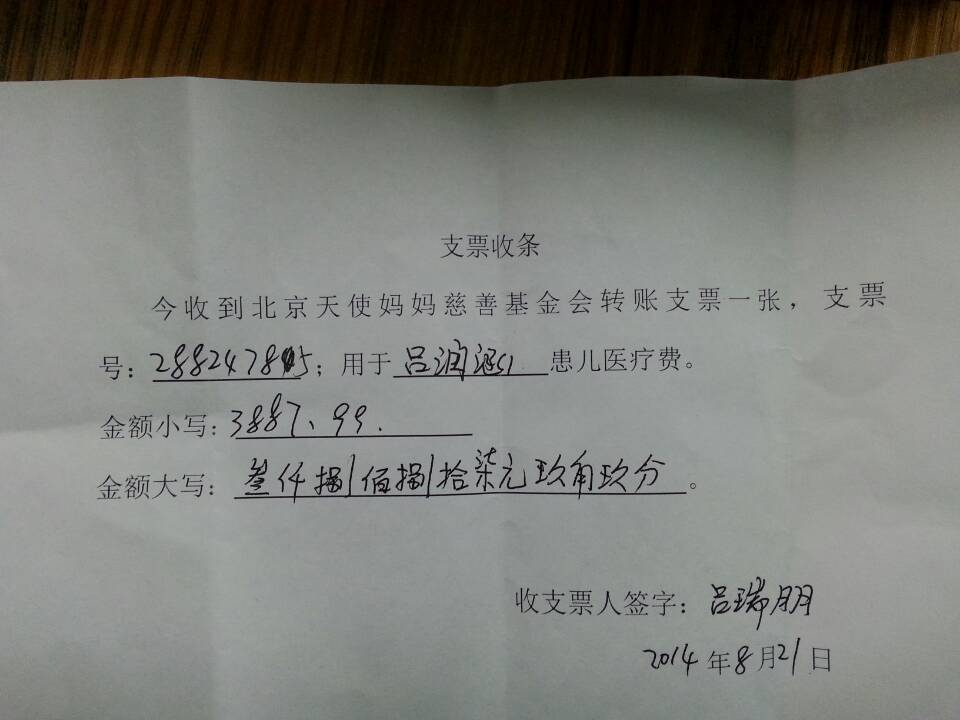 支票收条
今收到北京天使妈妈慈善基金会转账支票一张，支票
号：28824785；用于吕润涵患儿医疗费。
金额小写：3887、99.
金额大写：叁仟捌佰捌拾柒元玖角玖分。
收支票人签字：吕瑞朋
2014年8月21日